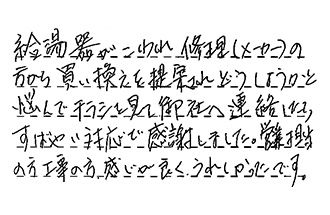 給湯器がこわれ 修理(メーカー)の
方から買い換えを提案されどうしようかと
悩んでチラシを見て御社へ連絡したら
すばやい対応で感謝しました。営業担当
の方工事の方感じが良くうれしかったです。